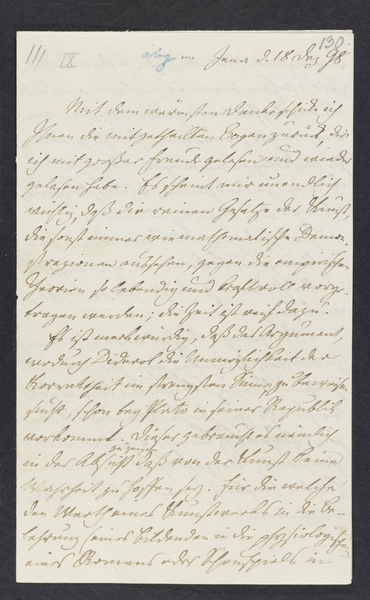 130.
III IX abg. Jena d. 18 Dez 98.
Mit dem wärmsten Danke schicke ich
Ihnen die mitgetheilten Bogen zurück, die
ich mit großer Freude gelesen und wieder
gelesen habe. Es scheint mir unendlich
wichtig, daß die reinen Gesetze der Kunst,
die sonst immer wie mathematische Demon-
strazionen aussehen, gegen die empirischen
Theorien so lebendig und kraftvoll vorge-
tragen werden; die Zeit ist reif dazu.
Es ist merkwürdig, daß das Argument,
wodurch Diderot die Unmöglichkeit der
Korrektheit im strengsten Sinne zu beweisen
sucht, schon bey Plato in seiner Republik
vorkommt. Dieser gebraucht es nämlich
in der Absicht zu zeigen daß von der Kunst keine
Wahrheit zu hoffen sey. Für die welche
den Werth eines Kunstwerks in die Be-
lehrung seines Bildenden in die physiologische
eines Romans oder Schauspiels in